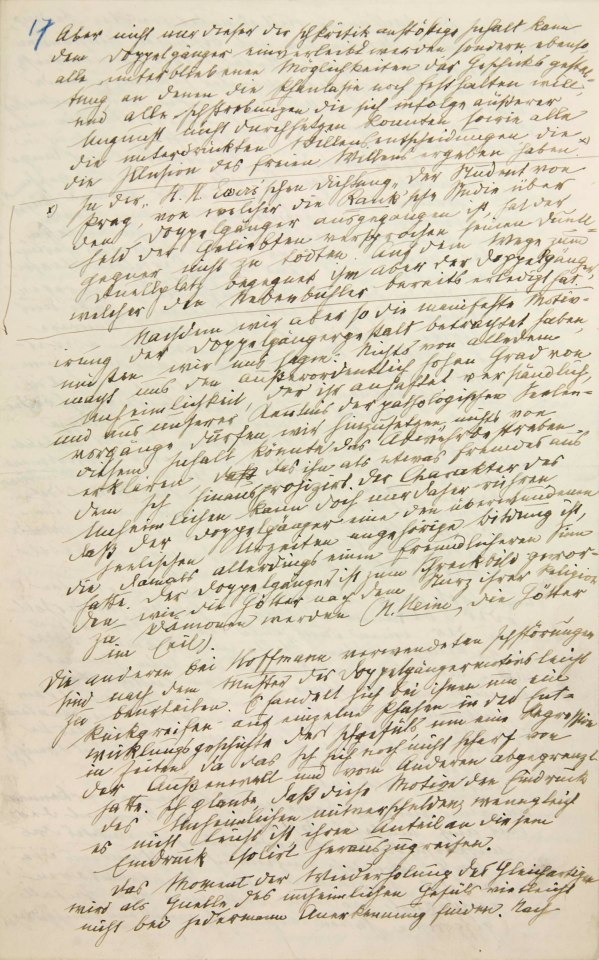 17 Aber nicht nur dieser der Ichkritik anstößige Inhalt kann
dem Doppelgänger einverleibt werden sondern ebenso
alle unterbliebenen Möglichkeiten der Geschicksgestal-
tung an denen die Phantasie noch festhalten will,
und alle Ichstrebungen die sich infolge äußerer
Ungunst nicht durchsetzen konnten sowie alle
die unterdrückten Willensentscheidungen, die
die Illusion des freien Willens ergeben haben. x)
x) In der H. H. Ewers'schen Dichtung „Der Student von
Prag", von welcher die Rank'sche Studie über
den Doppelgänger ausgegangen ist, hat der
Held der Geliebten versprochen seinen Duell-
gegner nicht zu tödten. Auf dem Wege zum
Duellplatz begegnet ihm aber der Doppelgänger
welcher den Nebenbuhler bereits erledigt hat.
Nachdem wir aber so die manifeste Motiv-
irung der Doppelgängergestalt betrachtet haben,
müssen wir uns sagen: Nichts von alledem
macht uns den außerordentlich hohen Grad von
Unheimlichkeit, der ihr anhaftet verständlich,
und aus unserer Kenntnis der pathologischen Seelen-
vorgänge dürfen wir hinzusetzen, nichts von
diesem Inhalt könnte das Abwehrbestreben
erklären, daß das ihn als etwas Fremdes aus
dem Ich hinausprojizirt. Der Charakter des
Unheimlichen kann doch nur daher rühren
daß der Doppelgänger eine den überwundenen
seelischen Urzeiten angehörige Bildung ist,
die damals allerdings einen freundlicheren Sinn
hatte. Der Doppelgänger ist zum Schreckbild gewor-
den wie die Götter nach dem Sturz ihrer Religion
zu Dämonen werden (H. Heine, die Götter
im Exil).
Die anderen bei Hoffmann verwendeten Ichstörungen
sind nach dem Muster des Doppelgängermotivs leicht
zu beurteilen. Es handelt sich bei ihnen um ein
Rückgreifen auf einzelne Phasen in der Ent-
wicklungsgeschichte des Ichgefühls um eine Regression
in Zeiten da das Ich sich noch nicht scharf von
der Außenwelt und vom Anderen abgegrenzt
hatte. Ich glaube, daß diese Motive den Eindruck
des Unheimlichen mitverschulden, wenngleich
es nicht leicht ist ihren Anteil an diesem
Eindruck isolirt herauszugreifen.
Das Moment der Wiederholung des Gleichartigen
wird als Quelle des unheimlichen Gefühls vielleicht
nicht bei jedermann Anerkennung finden. Nach